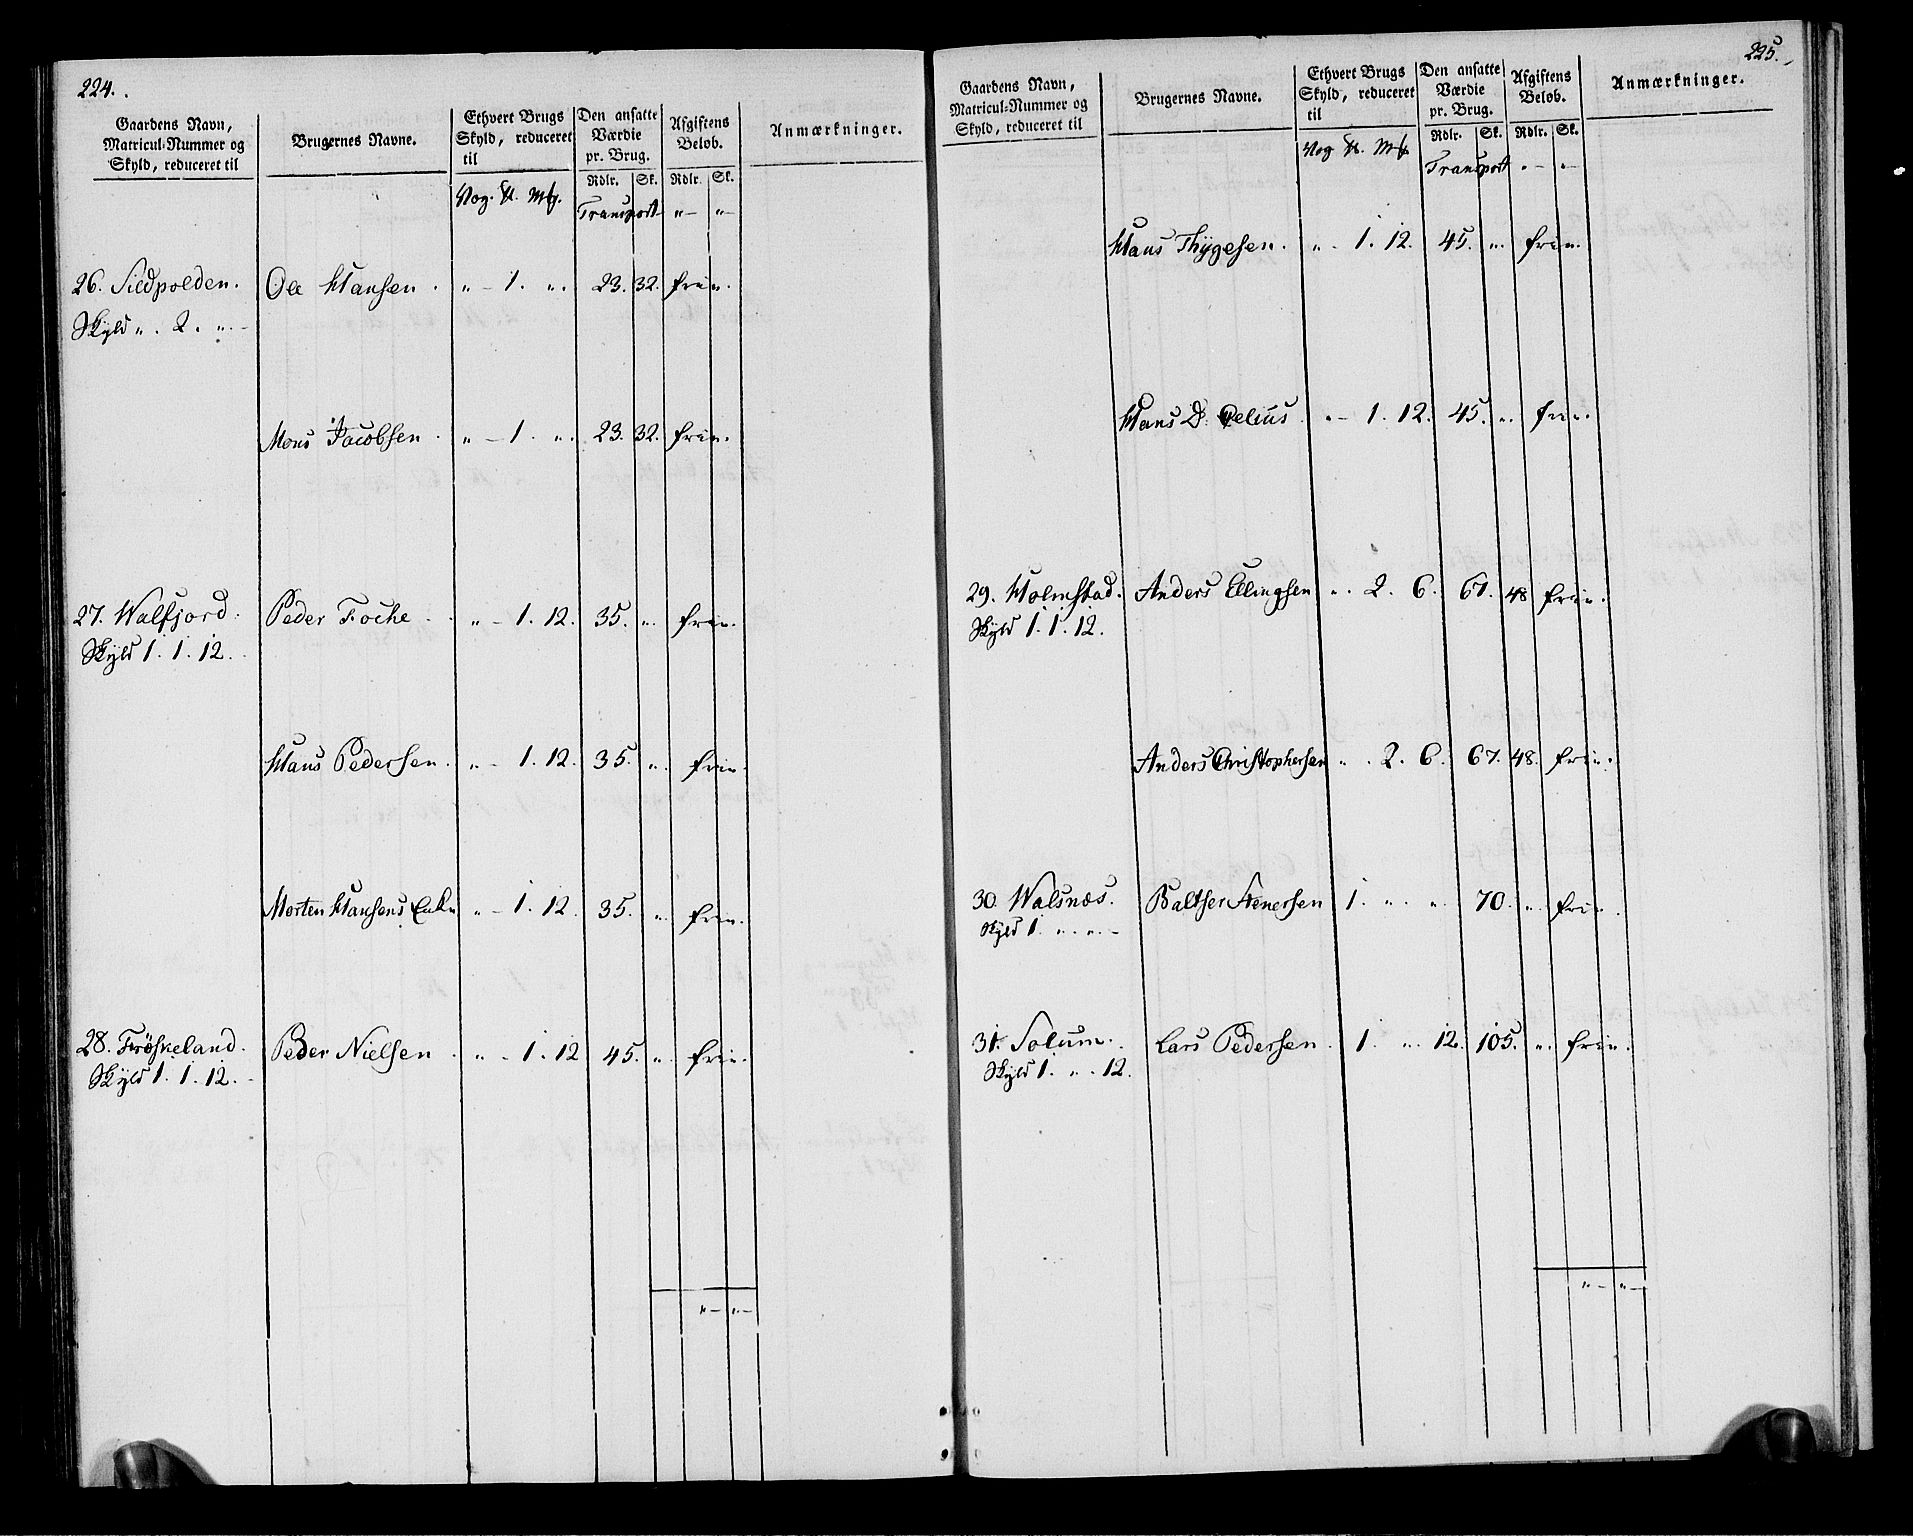 224.
Gaardens Navn, Matricul-Nummer og Skyld, reduceret til
Brugernes Navne.
Ethvert Brugs Skyld, reduceret til
Den ansatte Værdie pr. Brug.
Afgiftens Beløb.
Anmærkninger.
Vog. ℔. Mk.
Rdlr. Sk. Rdlr. Sk.
Transport „ – „ –
26. Sildpolden. Ole Hansen. „ – 1. „. 23. 32. frie.
Skyld „. 2. „. –
Mons Jacobsen. „ – 1. „. 23. 32. frie.
27. Walfjord. Peder Foche. „ – 1. 12. 35. „. frie.
Skyld 1. 1. 12.
Hans Pedersen. „ – 1. 12. 35. „. frie.
Morten Hansens Enke „ – 1. 12. 35. „. frie.
28. Frøskeland. Peder Nielsen. „ – 1. 12. 45. „. frie.
Skyld 1. 1. 12.
„ – „ –
225.
Gaardens Navn, Matricul-Nummer og Skyld, reduceret til
Brugernes Navne.
Ethvert Brugs Skyld, reduceret til
Den ansatte Værdie pr. Brug.
Afgiftens Beløb.
Anmærkninger.
Vog ℔. Mk.
Rdlr. Sk. Rdlr. Sk.
Transport „ – „ –
Hans Thygesen. „ – 1. 12. 45. „. frie.
Hans D. Pelius. „ – 1. 12. 45. „. frie.
29. Holmstad. Anders Ellingsen „. 2. 6. 67. 48 frie.
Skyld 1. 1. 12.
Anders Christophersen „. 2. 6. 67. 48. frie.
30. Walsnæs. Baltser Stenersen 1. „. „. 70. „. frie.
Skyld 1. „. „. –
31. Solum. Lars Pedersen. 1. „. 12. 105. „. frie.
Skyld 1. „. 12.
„ – „ –